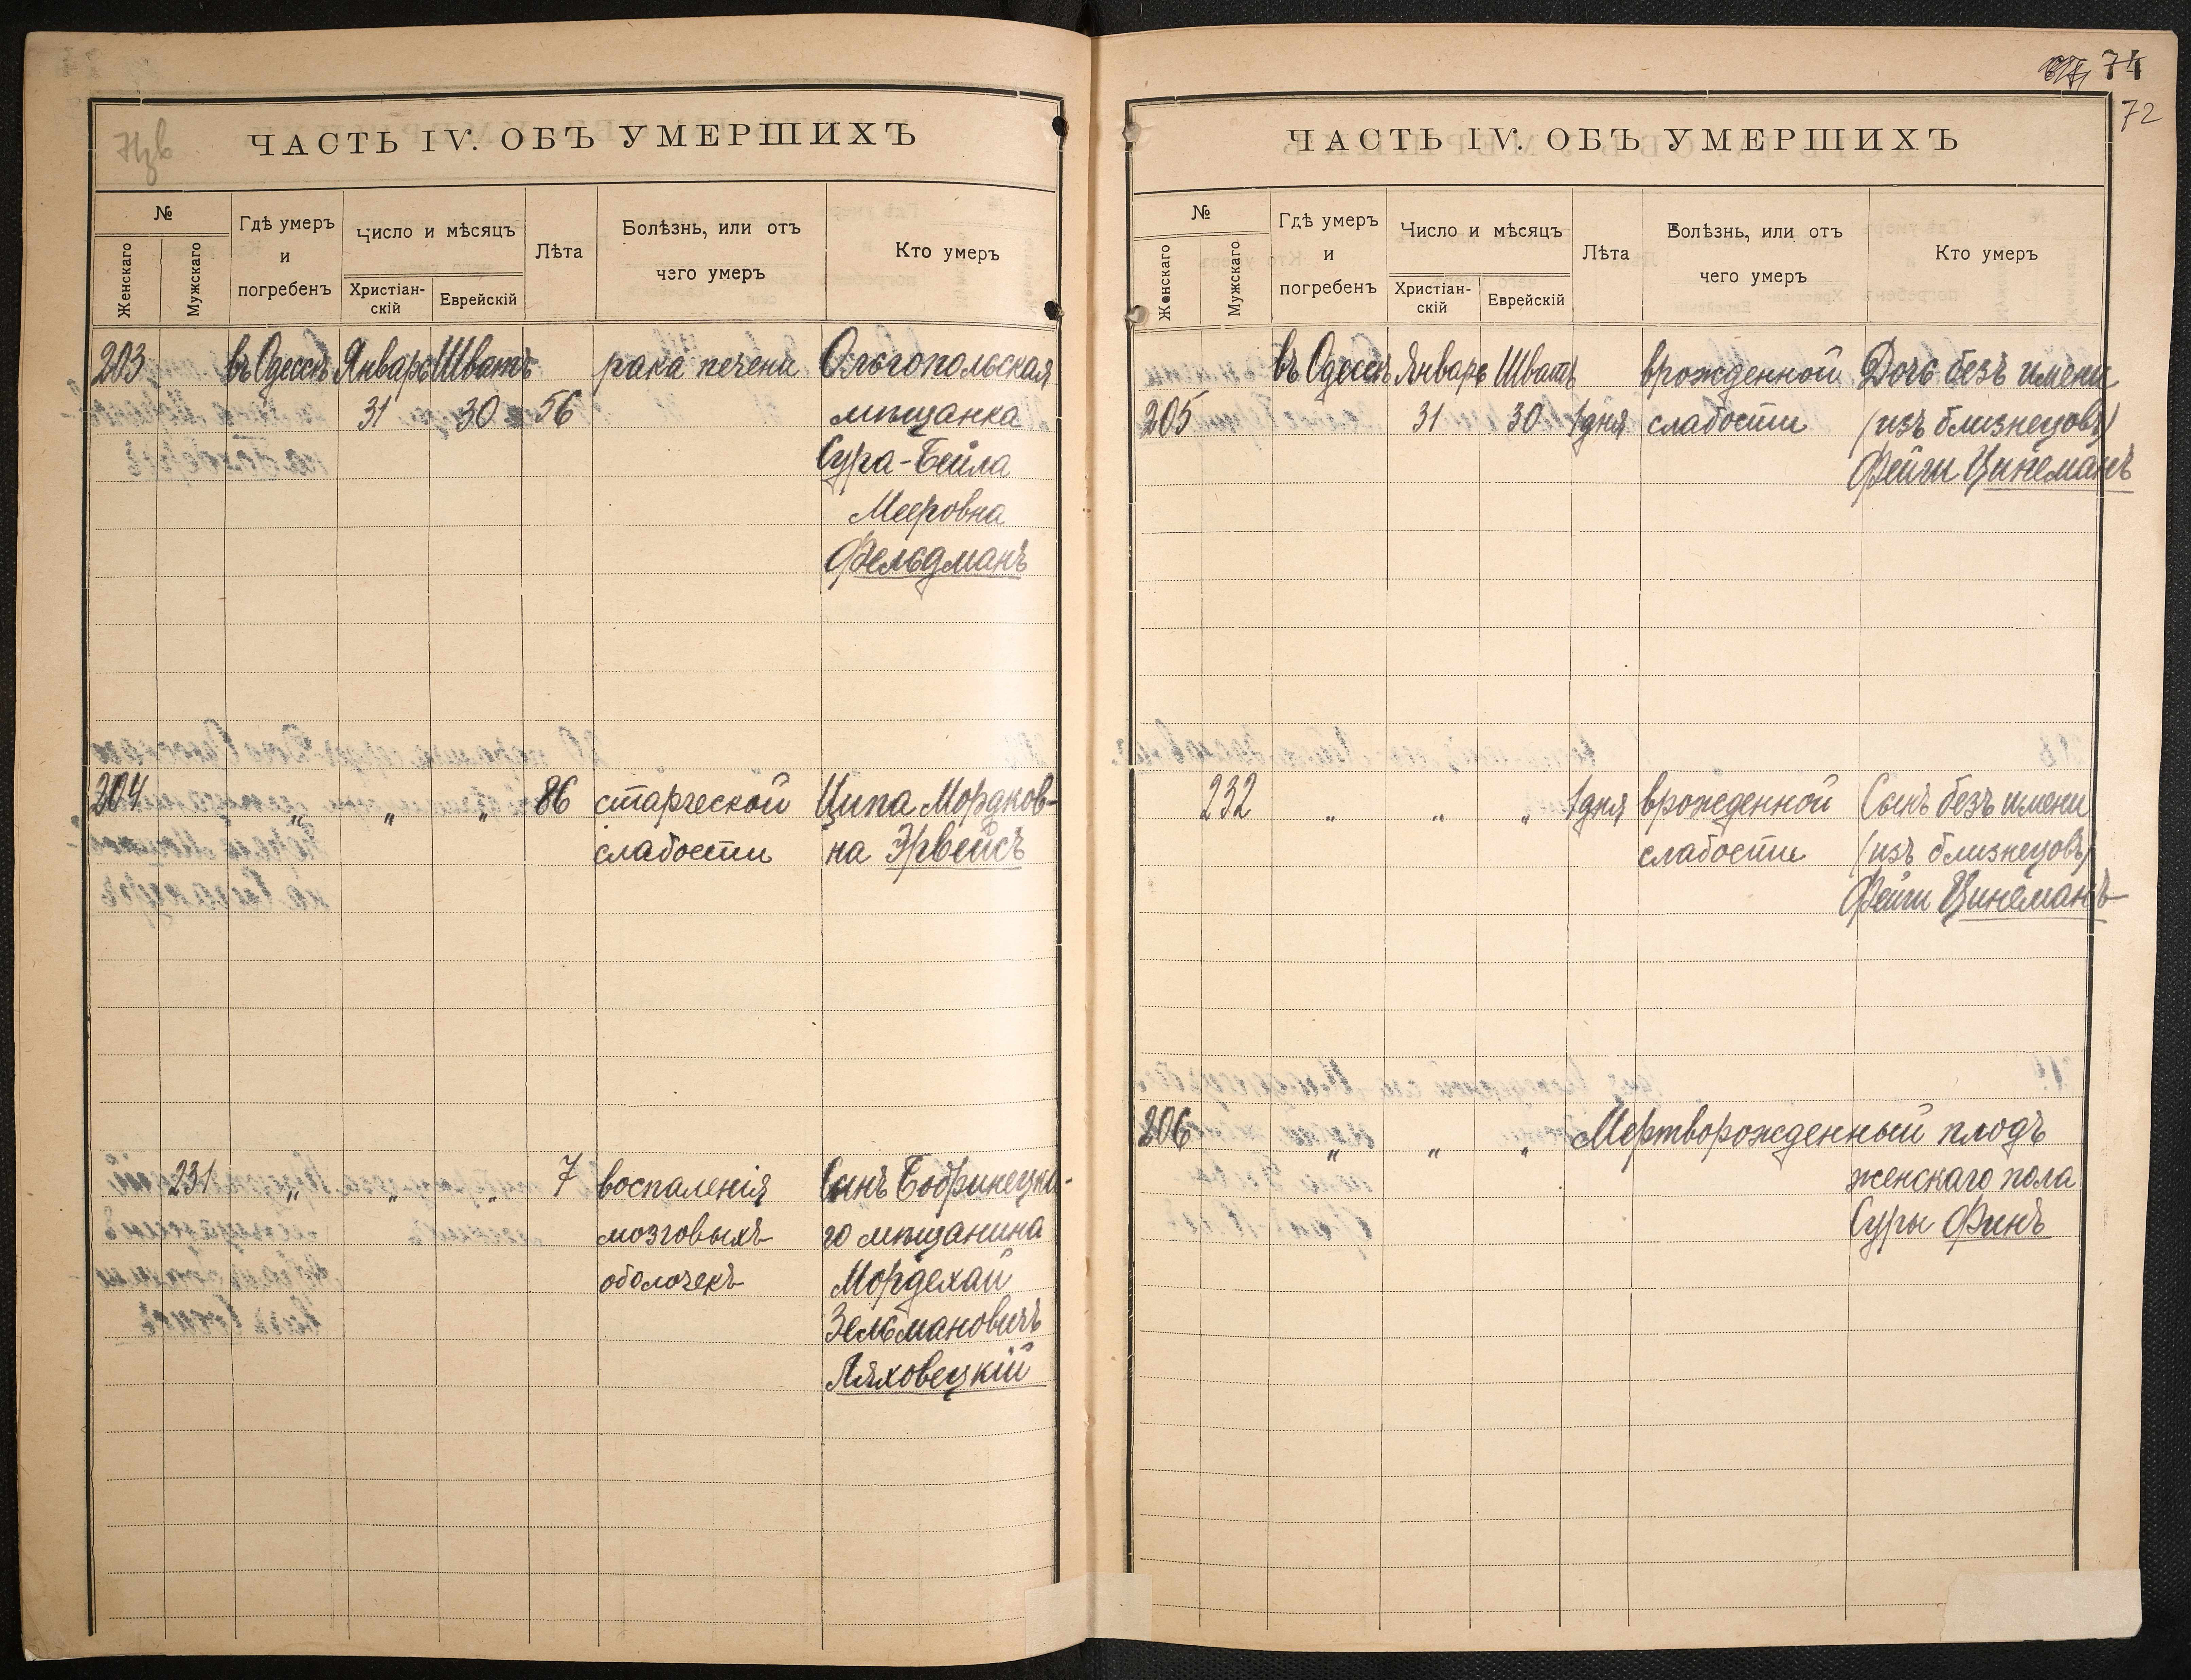 ЧАСТЬ IV. ОБЪ УМЕРШИХЪ
№
Женскаго
Мужскаго
Гдѣ умеръ
и
погребенъ
Число и мѣсяцъ
Христіан-
скій
Еврейскій
Лѣта
Болѣзнь, или отъ
чего умеръ
Кто умеръ
203 въ Одессѣ Январь Шватъ рака печени Ольгопольская
31 30 56 мѣщанка
Сура-Бейла
Мееровна
Фельдманъ
204 „ „ „ 86 старческой Ципа Мордков-
слабости на Эрвейсъ
231 „ „ „ 7 воспаленія Сынъ Бобринецка-
мозговыхъ го мѣщанина
оболочекъ Мордехай
Зельмановичъ
Ляховецкій
74
72
ЧАСТЬ IV. ОБЪ УМЕРШИХЪ
№
Женскаго
Мужскаго
Гдѣ умеръ
и
погребенъ
Число и мѣсяцъ
Христіан-
скій
Еврейскій
Лѣта
Болѣзнь, или отъ
чего умеръ
Кто умеръ
въ Одессѣ Январь Шватъ врожденной Дочь безъ имени
205 31 30 1 дня слабости (изъ близнецовъ)
Фейги Цинеманъ
232 „ „ „ 1 дня врожденной Сынъ безъ имени
слабости (изъ близнецовъ)
Фейги Цинеманъ
206 „ „ „ Мертворожденный плодъ
женскаго пола
Суры Финъ